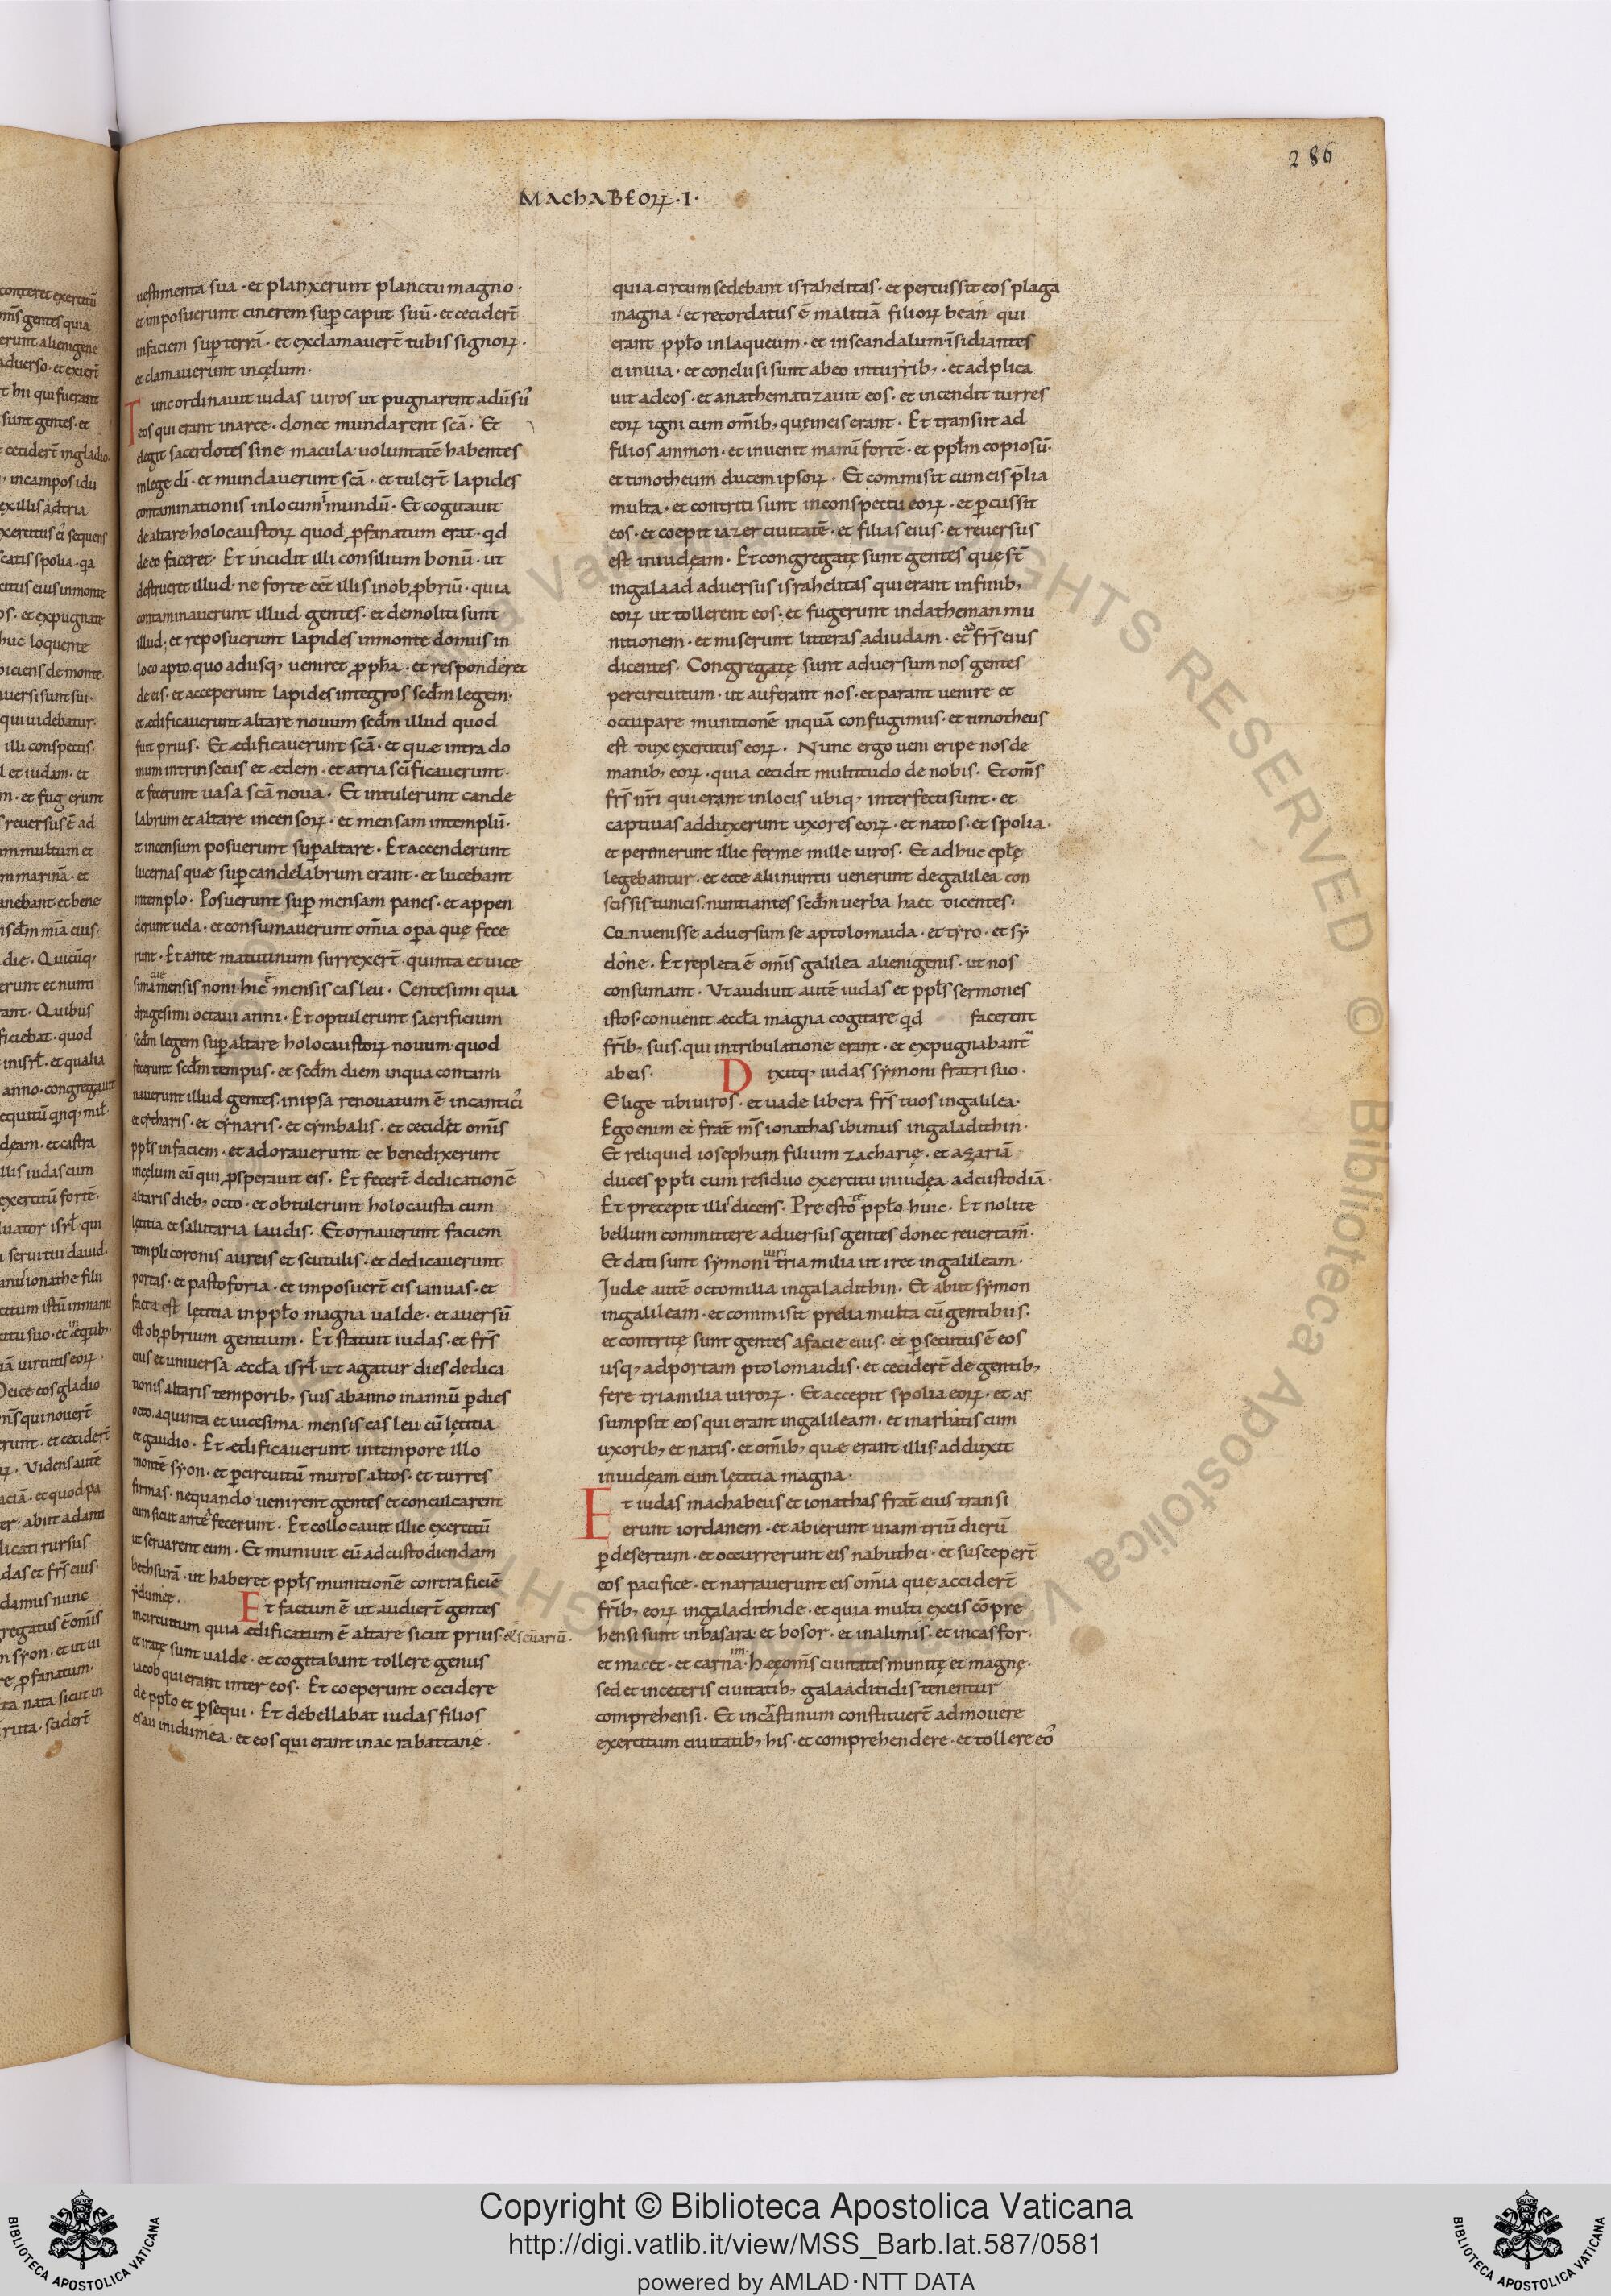 286
MachaBeoꝝ·I·
uestimenta sua·et planxerunt planctu magno·
et imposuerunt cinerem suꝑ caput suū·et cecider̄t
infaciem suꝑ terrā·et exclamauer̄t tubis signoꝝ·
et clamauerunt incęlum·
Tunc ordinauit iudas uiros ut pugnarent adūsuꝰ
eos qui erant inarce·donec mundarent sc̄a·Et
elegit sacerdotes sine macula·uoluntatē habentes
inlege dī·et mundauerunt sc̄a·et tuler̄t lapides
contaminationis inlocum īmundū·Et cogitauit
de altare holocaustoꝝ quod ꝓfanatum erat·qd
de eo faceret·Et incidit illi consilium bonū·ut
destrueret illud·ne forte eēt illis inobꝓbriū·quia
contaminauerunt illud gentes·et demoliti sunt
illud·et reposuerunt lapides inmonte domus in
loco apto·quo adusq; ueniret ꝓpħa·et responderet
de eis·et acceperunt lapides integros scd̄m legem·
et ædificauerunt altare nouum scd̄m illud quod
fuit prius·Et ædificauerunt sc̄a·et quæ intra do
mum intrinsecus et ædem·et atria sc̄ificauerunt·
et fecerunt uasa sc̄a noua·Et intulerunt cande
labrum et altare incensoꝝ·et mensam intemplū·
et incensum posuerunt suꝑ altare·Et accenderunt
lucernas quæ suꝑ candelabrum erant·et lucebant
intemplo·Posuerunt suꝑ mensam panes·et appen
derunt uela·et consumauerunt om̄ia oꝑa quę fece
runt·Et ante matutinum surrexer̄t·quinta et uice
sima die mensis noni·hic ē mensis casleu·Centesimi qua
dragesimi octaui anni·Et optulerunt sacrificium
scd̄m legem suꝑ altare holocaustoꝝ nouum·quod
fecerunt scd̄m tempus·et scd̄m diem inqua contami
nauerunt illud gentes·inipsa renouatum ē incanticꝭ
et cytharis·et cynaris·et cymbalis·et cecidit om̄is
ppl̄s infaciem·et adorauerunt et benedixerunt
incęlum eū qui ꝓsperauit eis·Et fecer̄t dedicationē
altaris dieb; octo·et obtulerunt holocausta cum
lętitia et salutaria laudis·Et ornauerunt faciem
templi coronis aureis et scutulis·et dedicauerunt
portas·et pastoforia·et imposuer̄t eis ianuas·et
facta est lętitia inppl̄o magna ualde·et auersū
est obꝓbrium gentium·Et statuit iudas·et fr̄s
eius et uniuersa æccl̄a isrl̄ ut agatur dies dedica
tionis altaris temporib; suis abanno inannū ꝑ dies
octo·aquinta et uicesima mensis casleu cū lętitia
et gaudio·Et ædificauerunt intempore illo
montē syon·et ꝑcircuitū muros altos·et turres
firmas·nequando uenirent gentes et conculcarent
eum sicut ante fecerunt·Et collocauit illic exercitū
ut seruarent eum·Et muniuit eū adcustodiendam
bethsurā·ut haberet ppl̄s munitionē contra faciē
ydumęę· Et factum ē ut audier̄t gentes
incircuitum quia ædificatum ē altare sicut prius·et sc̄uariū·
et iratę sunt ualde·et cogitabant tollere genus
iacob qui erant inter eos·Et coeperunt occidere
de ppl̄o et ꝑsequi·Et debellabat iudas filios
esau inidumea·et eos qui erant inacrabattane·
quia circumsedebant israhelitas·et percussit eos plaga
magna·et recordatus ē malitiā filioꝝ bean qui
erant ppl̄o inlaqueum·et inscandalum īsidiantes
ei inuia·et conclusi sunt abeo inturrib;·et adplica
uit adeos·et anathematizauit eos·et incendit turres
eoꝝ igni cum om̄ib; qui ineis erant·Et transiit ad
filios ammon·et inuenit manū fortē·et ppl̄m copiosū·
et timotheum ducem ipsoꝝ·Et commisit cum eis pr̄lia
multa·et contriti sunt inconspectu eoꝝ·et ꝑcussit
eos·et coepit iazer ciuitatē·et filias eius·et reuersus
est iniudęam·Et congregatę sunt gentes quę sr̄t
ingalaad aduersus israhelitas qui erant infinib;
eoꝝ ut tollerent eos·et fugerunt indatheman mu
nitionem·et miserunt litteras adiudam·et ad fr̄s eius
dicentes·Congregatę sunt aduersum nos gentes
percircuitum·ut auferant nos·et parant uenire et
occupare munitionē inquā confugimus·et timotheus
est dux exercitus eoꝝ·Nunc ergo ueni eripe nos de
manib; eoꝝ·quia cecidit multitudo de nobis·Et om̄s
fr̄s nr̄i qui erant inlocis ubiq; interfecti sunt·et
captiuas adduxerunt uxores eoꝝ·et natos·et spolia·
et peremerunt illic ferme mille uiros·Et adhuc epl̄ę
legebantur·et ecce alii nuntii uenerunt degalilea con
scissis tunicis·nuntiantes scd̄m uerba haec dicentes·
Conuenisse aduersum se aptolomaida·et tyro·et sy
done·Et repleta ē om̄is galilea alienigenis·ut nos
consumant·Ut audiuit autē iudas et ppl̄s sermones
istos·conuenit æccl̄a magna cogitare qd facerent
fr̄ib; suis·qui intribulatione erant·et expugnabant̄
abeis· Dixitq; iudas symoni fratri suo·
Elige tibi uiros·et uade libera fr̄s tuos ingalilea·
Ego enim et frat̄ m̄s ionathas ibimus ingaladithin·
Et reliquid iosephum filium zacharię·et azariā
duces ppl̄i cum residuo exercitu iniudęa adcustodiā·
Et precepit illis dicens·Pre estote ppl̄o huic·Et nolite
bellum committere aduersus gentes donec reuertam̄·
Et dati sunt symoni uiri tria milia ut iret ingalileam·
Judæ autē octomilia ingaladithin·Et abiit symon
ingalileam·et commisit prelia multa cū gentibus·
et contritę sunt gentes afacie eius·et ꝑsecutus ē eos
usq; adportam ptolomaidis·et cecider̄t de gentib;
fere triamilia uiroꝝ·Et accepit spolia eoꝝ·et as
sumpsit eos qui erant ingalileam·et inarbatis cum
uxorib; et natis·et om̄ib; quæ erant illis·adduxit
iniudęam cum lętitia magna·
Et iudas machabeus et ionathas frat̄ eius transi
erunt iordanem·et abierunt uiam triū dierū
ꝑ desertum·et occurrerunt eis nabuthei·et susceper̄t
eos pacifice·et narrauerunt eis om̄ia quę accider̄t
fr̄ib; eoꝝ ingaladithide·et quia multi ęxeis cōpre
hensi sunt inbasara et bosor·et inalimis·et incasfor·
et macet·et carnaim·hęę om̄s ciuitates munitę et magnę·
sed et inceteris ciuitatib; galaaditidis tenentur
comprehensi·Et incrastinum constituer̄t admouere
exercitum ciuitatib; his·et comprehendere·et tollere eoꝰ
Copyright © Biblioteca Apostolica Vaticana
http://digi.vatlib.it/view/MSS_Barb.lat.587/0581
powered by AMLAD·NTT DATA